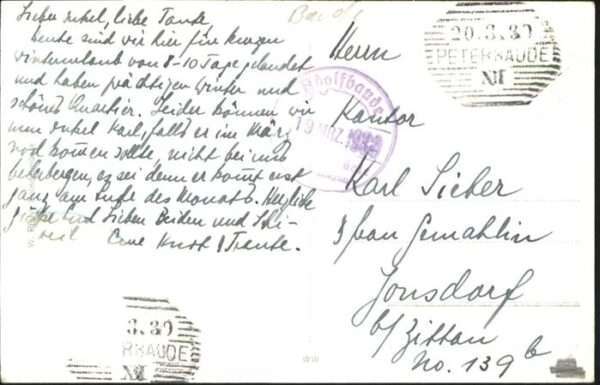 Lieber Onkel, liebe Tante,
heute sind wir hier für kurzen
Winterurlaub von 8-10 Tage gelandet
und haben prächtigen Winter und
schönes Quartier. Leider können wir
nun Onkel Karl, falls er im März
noch kommen sollte, nicht bei uns
beherbergen, es sei denn er kommt erst
ganz am Ende des Monats. Herzliche
Grüße Euch Lieben Beiden und
Eure Kurt & Traute.
Baude
MRZ.
20.3.30
PETERBAUDE
Herrn
Kantor
Karl Sieber
& Frau Gemahlin
Jonsdorf
b/Zittau
No. 139 b
3.30
RBAUDE